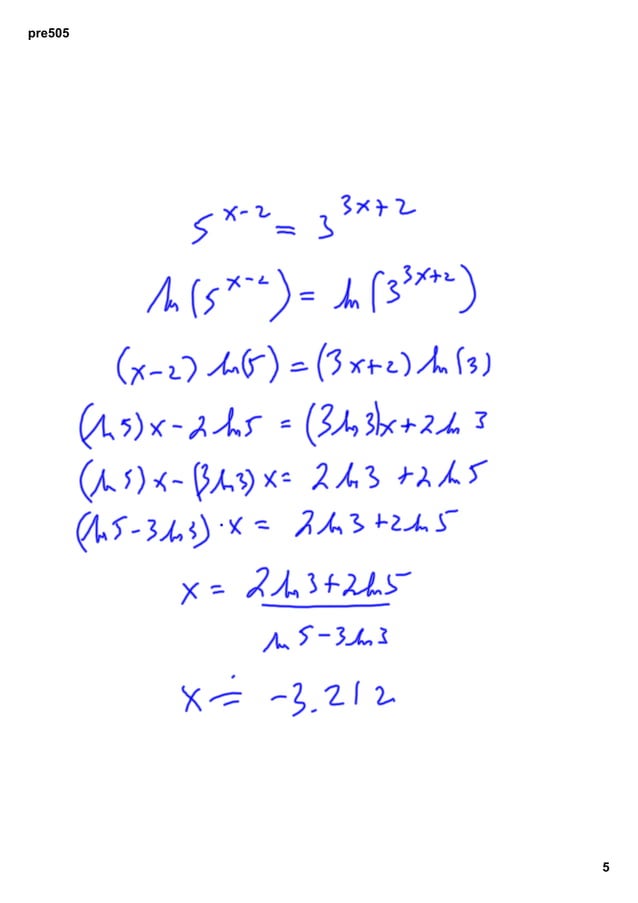 pre505
5^{x-2} = 3^{3x+2}
ln(5^{x-2}) = ln(3^{3x+2})
(x-2) ln(5) = (3x+2) ln(3)
(ln 5)x - 2 ln 5 = (3 ln 3)x + 2 ln 3
(ln 5)x - (3 ln 3) x = 2 ln 3 + 2 ln 5
(ln 5 - 3 ln 3) · x = 2 ln 3 + 2 ln 5
x = \frac{2 ln 3 + 2 ln 5}{ln 5 - 3 ln 3}
x ≐ -3.212
5